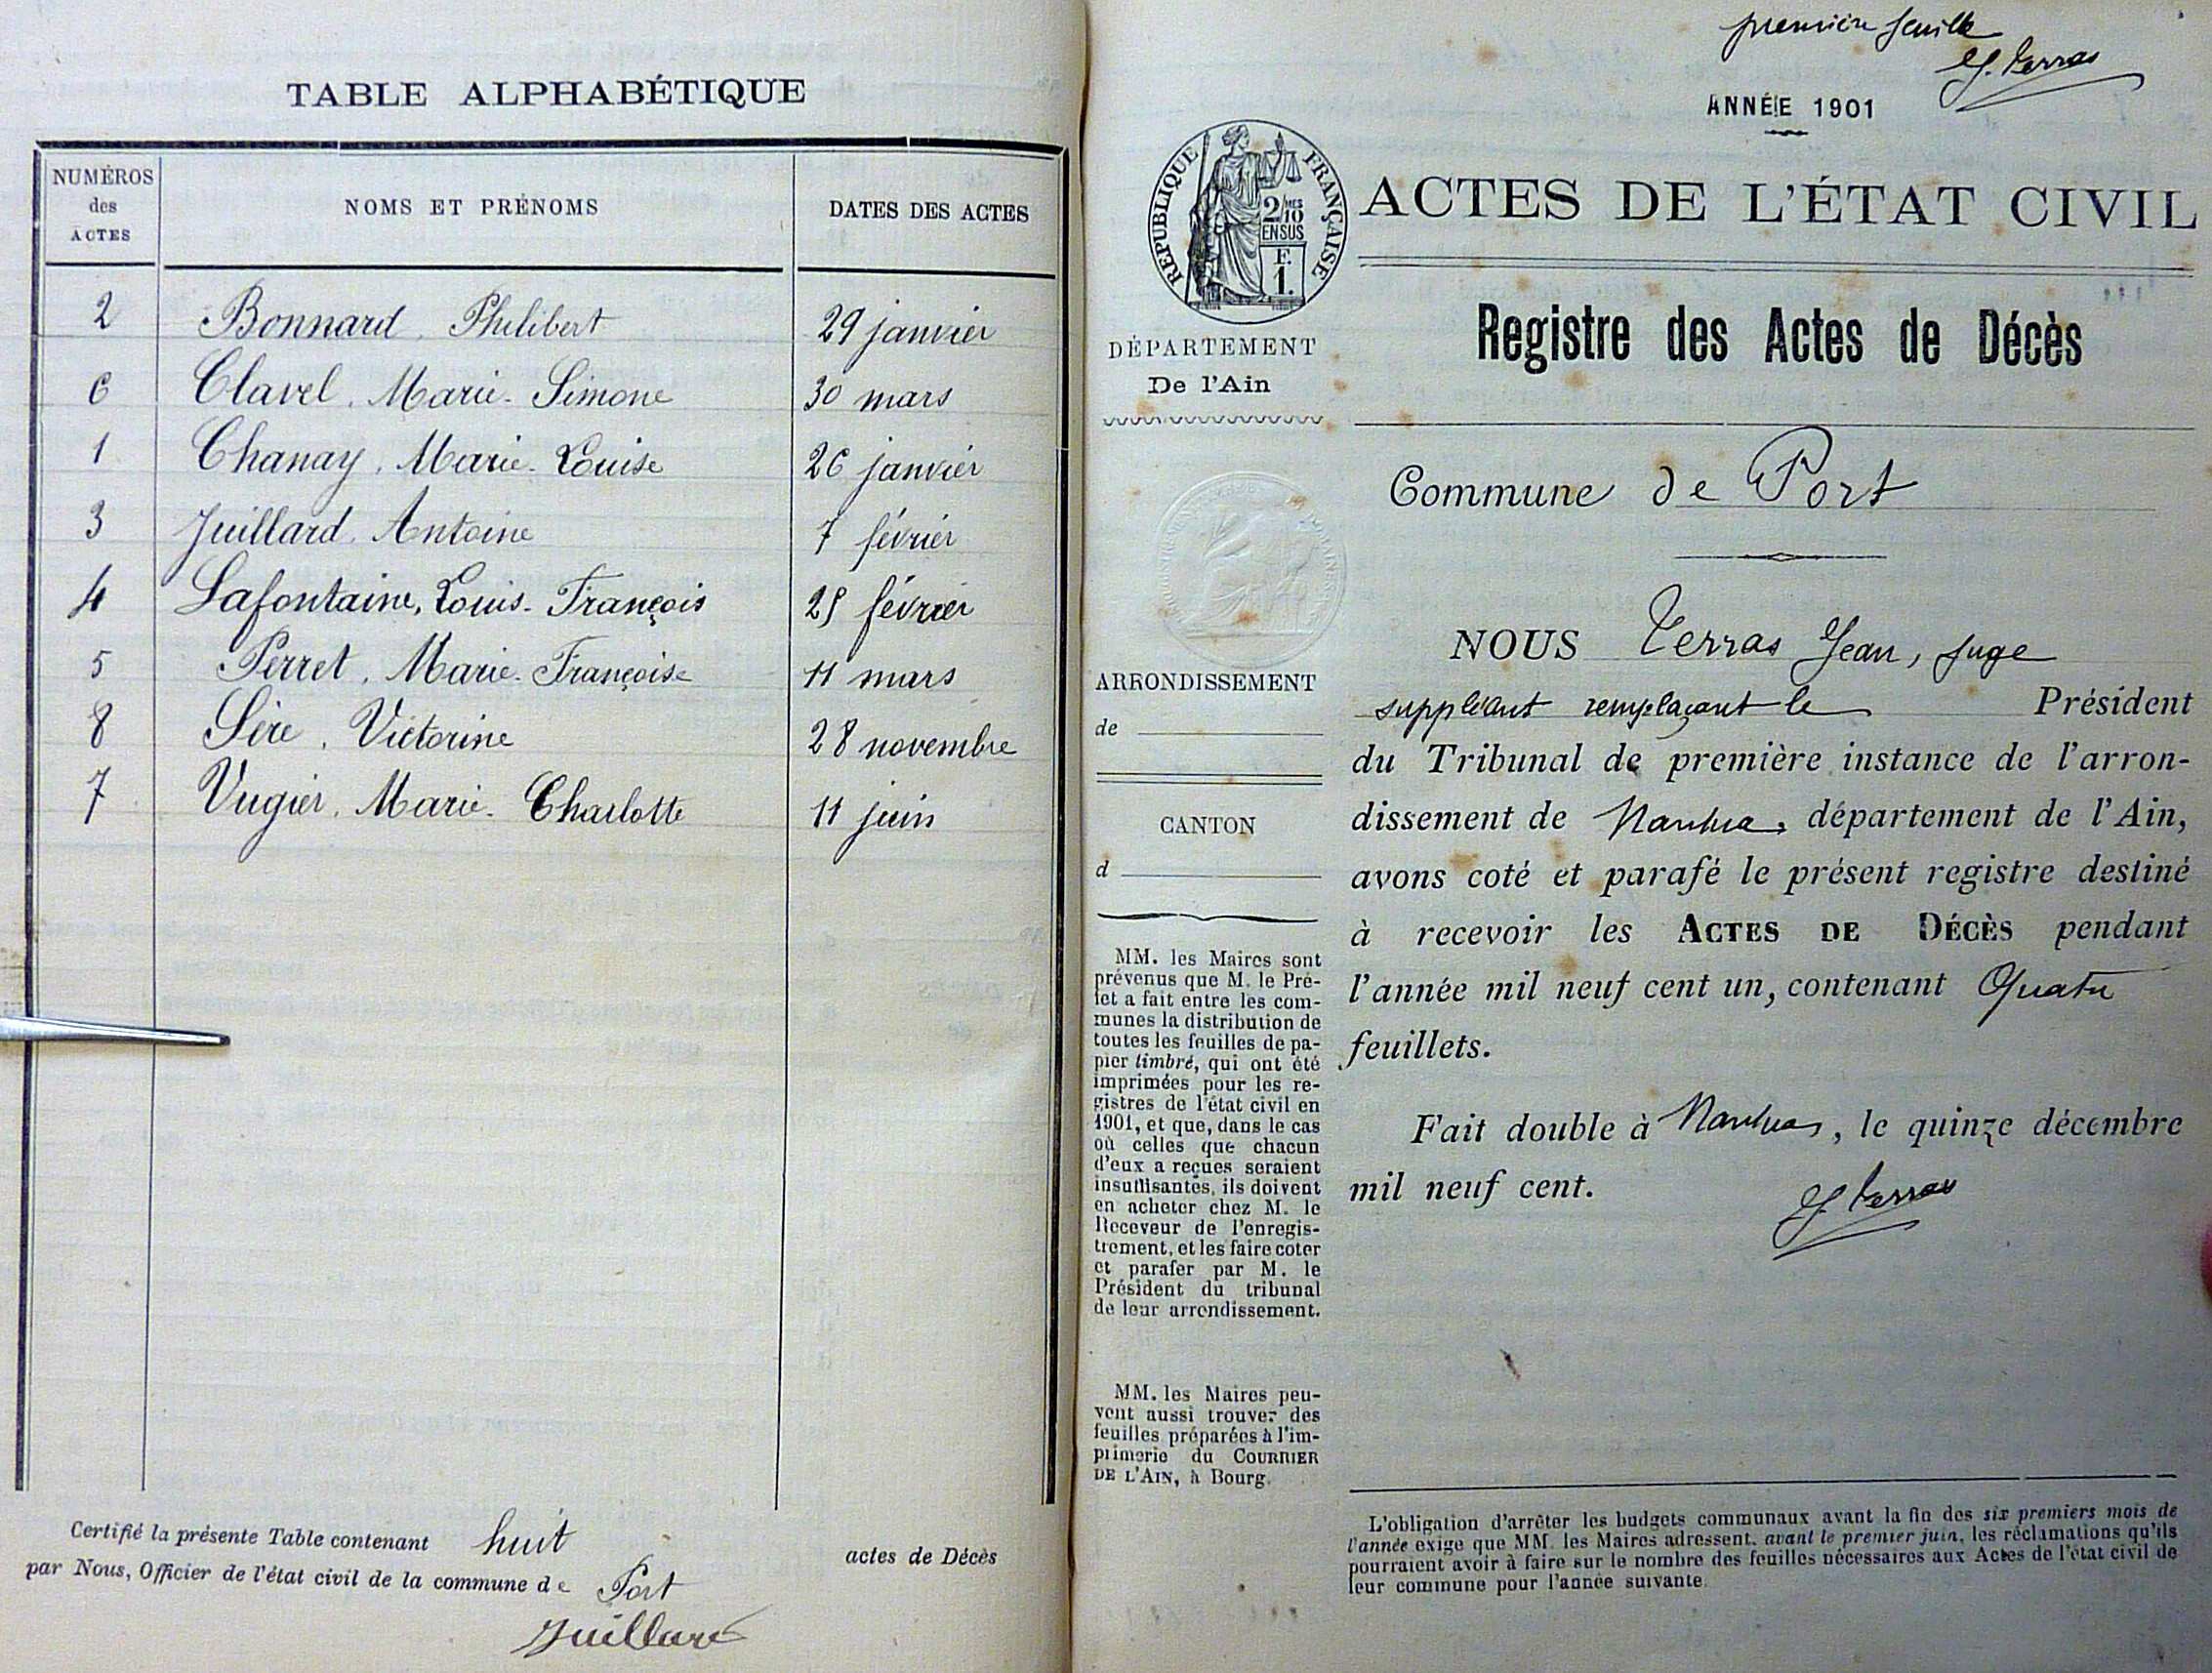 TABLE ALPHABÉTIQUE
NUMÉROS des ACTES NOMS ET PRÉNOMS DATES DES ACTES
2 Bonnard, Philibert 29 janvier
6 Clavel, Marie-Simone 30 mars
1 Chanay, Marie-Louise 26 janvier
3 Juillard, Antoine 7 février
4 Lafontaine, Louis-François 25 février
5 Perret, Marie-Françoise 11 mars
8 Sère, Victorine 28 novembre
7 Vugier, Marie-Charlotte 11 juin
Certifié la présente Table contenant huit actes de Décès
par Nous, Officier de l'état civil de la commune de Port
Juillard
première feuille
J. Terras
ANNÉE 1901
RÉPUBLIQUE FRANÇAISE
2/10
EN SUS
F.
1.
ACTES DE L'ÉTAT CIVIL
Registre des Actes de Décès
DÉPARTEMENT
De l'Ain
Commune de Port
ARRONDISSEMENT
de
CANTON
d
MM. les Maires sont
prévenus que M. le Pré-
fet a fait entre les com-
munes la distribution de
toutes les feuilles de pa-
pier timbré, qui ont été
imprimées pour les re-
gistres de l'état civil en
1901, et que, dans le cas
où celles que chacun
d'eux a reçues seraient
insuffisantes, ils doivent
en acheter chez M. le
Receveur de l'enregis-
trement, et les faire coter
et parafer par M. le
Président du tribunal
de leur arrondissement.
MM. les Maires peu-
vent aussi trouver des
feuilles préparées à l'im-
primerie du COURRIER
DE L'AIN, à Bourg.
NOUS Terras Jean, juge
suppléant remplaçant le Président
du Tribunal de première instance de l'arron-
dissement de Nantua, département de l'Ain,
avons coté et parafé le présent registre destiné
à recevoir les ACTES DE DÉCÈS pendant
l'année mil neuf cent un, contenant Quatre
feuillets.
Fait double à Nantua, le quinze décembre
mil neuf cent.
J. Terras
L'obligation d'arrêter les budgets communaux avant la fin des six premiers mois de
l'année exige que MM. les Maires adressent, avant le premier juin, les réclamations qu'ils
pourraient avoir à faire sur le nombre des feuilles nécessaires aux Actes de l'état civil de
leur commune pour l'année suivante.